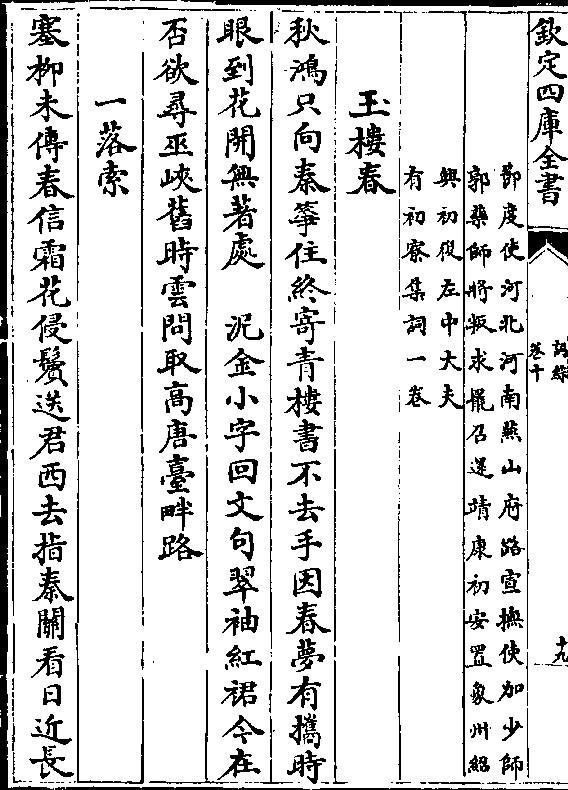 欽定四庫全書
詞綜
卷十
十九
節度使河北河南燕山府路宣撫使加少師
郭藥師將叛求罷召還靖康初安置象州紹
興初復左中大夫
有初寮集詞一卷
玉樓春
秋鴻只向秦箏住終寄青樓書不去手因春夢有攜時
眼到花開無著處　泥金小字回文句翠袖紅裙今在
否欲尋巫峽舊時雲問取高唐臺畔路
一落索
塞柳未傳春信霜花侵鬢送君西去指秦關看日近長